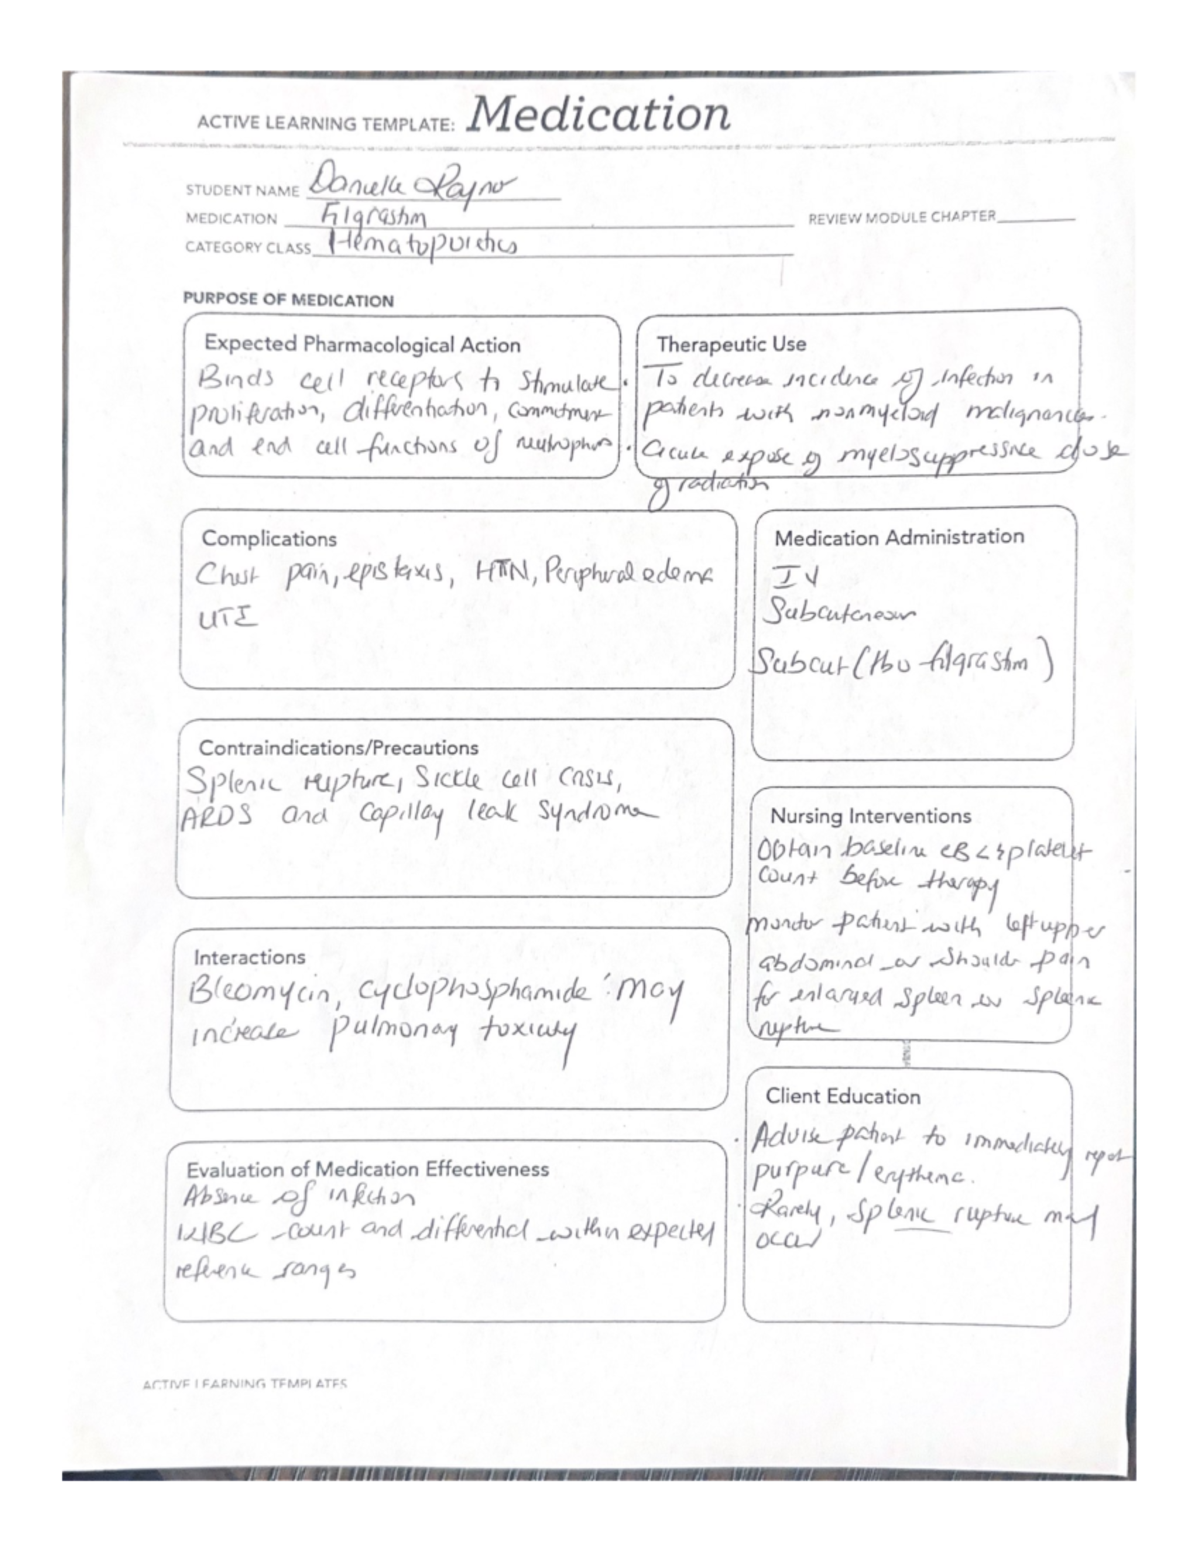 ACTIVE LEARNING TEMPLATE: Medication
STUDENT NAME Danielle Rayno
MEDICATION Filgrastim
REVIEW MODULE CHAPTER
CATEGORY CLASS Hematopoietics
PURPOSE OF MEDICATION
Expected Pharmacological Action
Binds cell receptors to stimulate
proliferation, differentiation, commitment
and end cell functions of neutrophils
Therapeutic Use
· To decrease incidence of infection in
patients with nonmyeloid malignancies.
· Acute expose of myelosuppressive dose
of radiation
Complications
Chest pain, epistaxis, HTN, Peripheral edema
UTI
Medication Administration
IV
Subcutaneous
Subcut (tbo filgrastim)
Contraindications/Precautions
Splenic rupture, Sickle cell crisis,
ARDS and Capillary leak syndrome
Nursing Interventions
Obtain baseline CBC & platelet
count before therapy
monitor patient with left upper
abdominal or shoulder pain
for enlarged spleen or splenic
rupture
Interactions
Bleomycin, cyclophosphamide: may
increase pulmonary toxicity
Client Education
· Advise patient to immediately report
purpura/erythema.
· Rarely, splenic rupture may
occur
Evaluation of Medication Effectiveness
Absence of infection
WBC count and differential within expected
reference ranges
ACTIVE LEARNING TEMPLATES